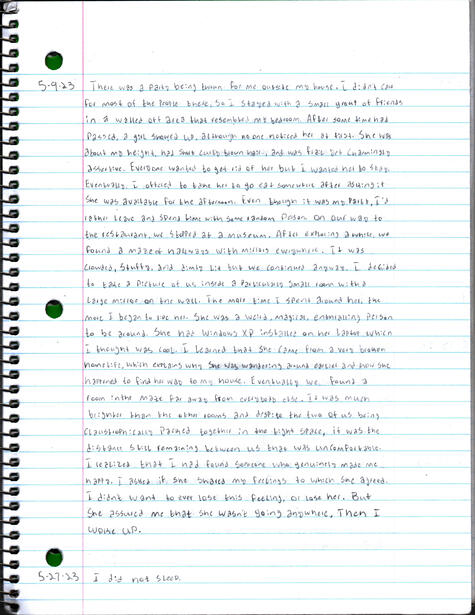 5-9-23 There was a party being thrown for me outside my house. I didn't care
for most of the people there, so I stayed with a small group of friends
in a walled off area that resembled my bedroom. After some time had
passed, a girl showed up, although no one noticed her at first. She was
about my height, had short curly brown hair, and was frail yet charmingly
assertive. Everyone wanted to get rid of her but I wanted her to stay.
Eventually, I offered to take her to go eat somewhere after asking if
she was available for the afternoon. Even though it was my party, I'd
rather leave and spend time with some random person. On our way to
the restaurant, we stopped at a museum. After exploring a while, we
found a maze of hallways with mirrors everywhere. It was
crowded, stuffy, and dimly lit but we continued anyway. I decided
to take a picture of us inside a particularly small room with a
large mirror on the wall. The more time I spent around her, the
more I began to like her. She was a weird, magical, enthralling person
to be around. She had Windows XP installed on her laptop which
I thought was cool. I learned that she came from a very broken
home life, which explains why she was wandering around earlier and how she
happened to find her way to my house. Eventually we found a
room in the maze far away from everybody else. It was much
brighter than the other rooms and despite the two of us being
claustrophically packed together in the tight space, it was the
distance still remaining between us that was uncomfortable.
I realized that I had found someone who genuinely made me
happy. I asked if she shared my feelings to which she agreed.
I didn't want to ever lose this feeling, or lose her. But
she assured me that she wasn't going anywhere. Then I
woke up.
5-27-23 I did not sleep.